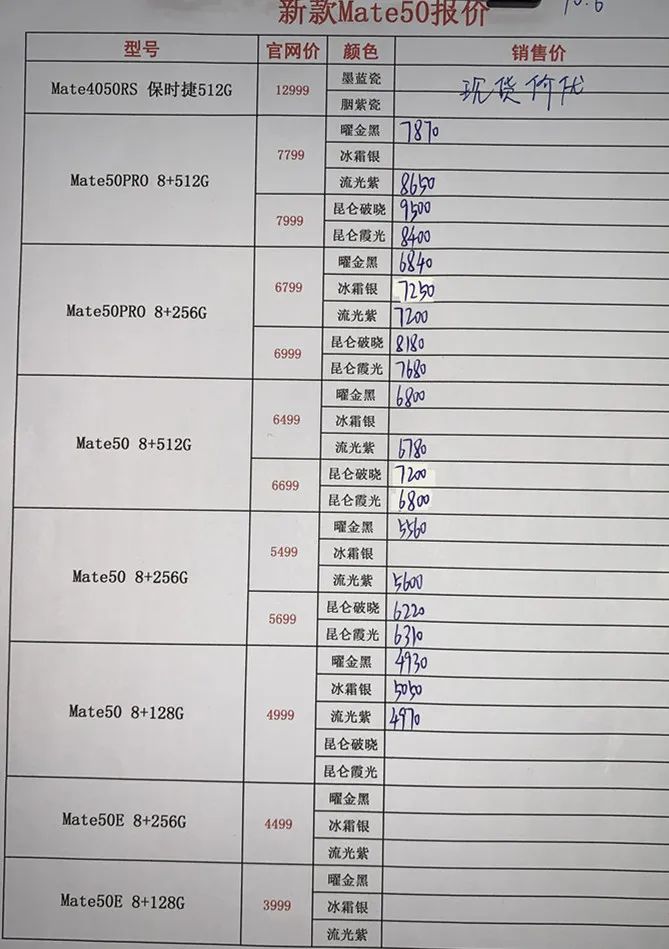 新款Mate50报价
10.6
型号 官网价 颜色 销售价
Mate4050RS 保时捷512G 12999 墨蓝瓷 现货价优
胭紫瓷
Mate50PRO 8+512G 7799 曜金黑 7870
冰霜银
流光紫 8650
7999 昆仑破晓 9500
昆仑霞光 8400
Mate50PRO 8+256G 6799 曜金黑 6840
冰霜银 7250
流光紫 7200
6999 昆仑破晓 8180
昆仑霞光 7680
Mate50 8+512G 6499 曜金黑 6800
冰霜银
流光紫 6780
6699 昆仑破晓 7200
昆仑霞光 6800
Mate50 8+256G 5499 曜金黑 5560
冰霜银
流光紫 5600
5699 昆仑破晓 6220
昆仑霞光 6310
Mate50 8+128G 4999 曜金黑 4930
冰霜银 5050
流光紫 4970
昆仑破晓
昆仑霞光
Mate50E 8+256G 4499 曜金黑
冰霜银
流光紫
Mate50E 8+128G 3999 曜金黑
冰霜银
流光紫